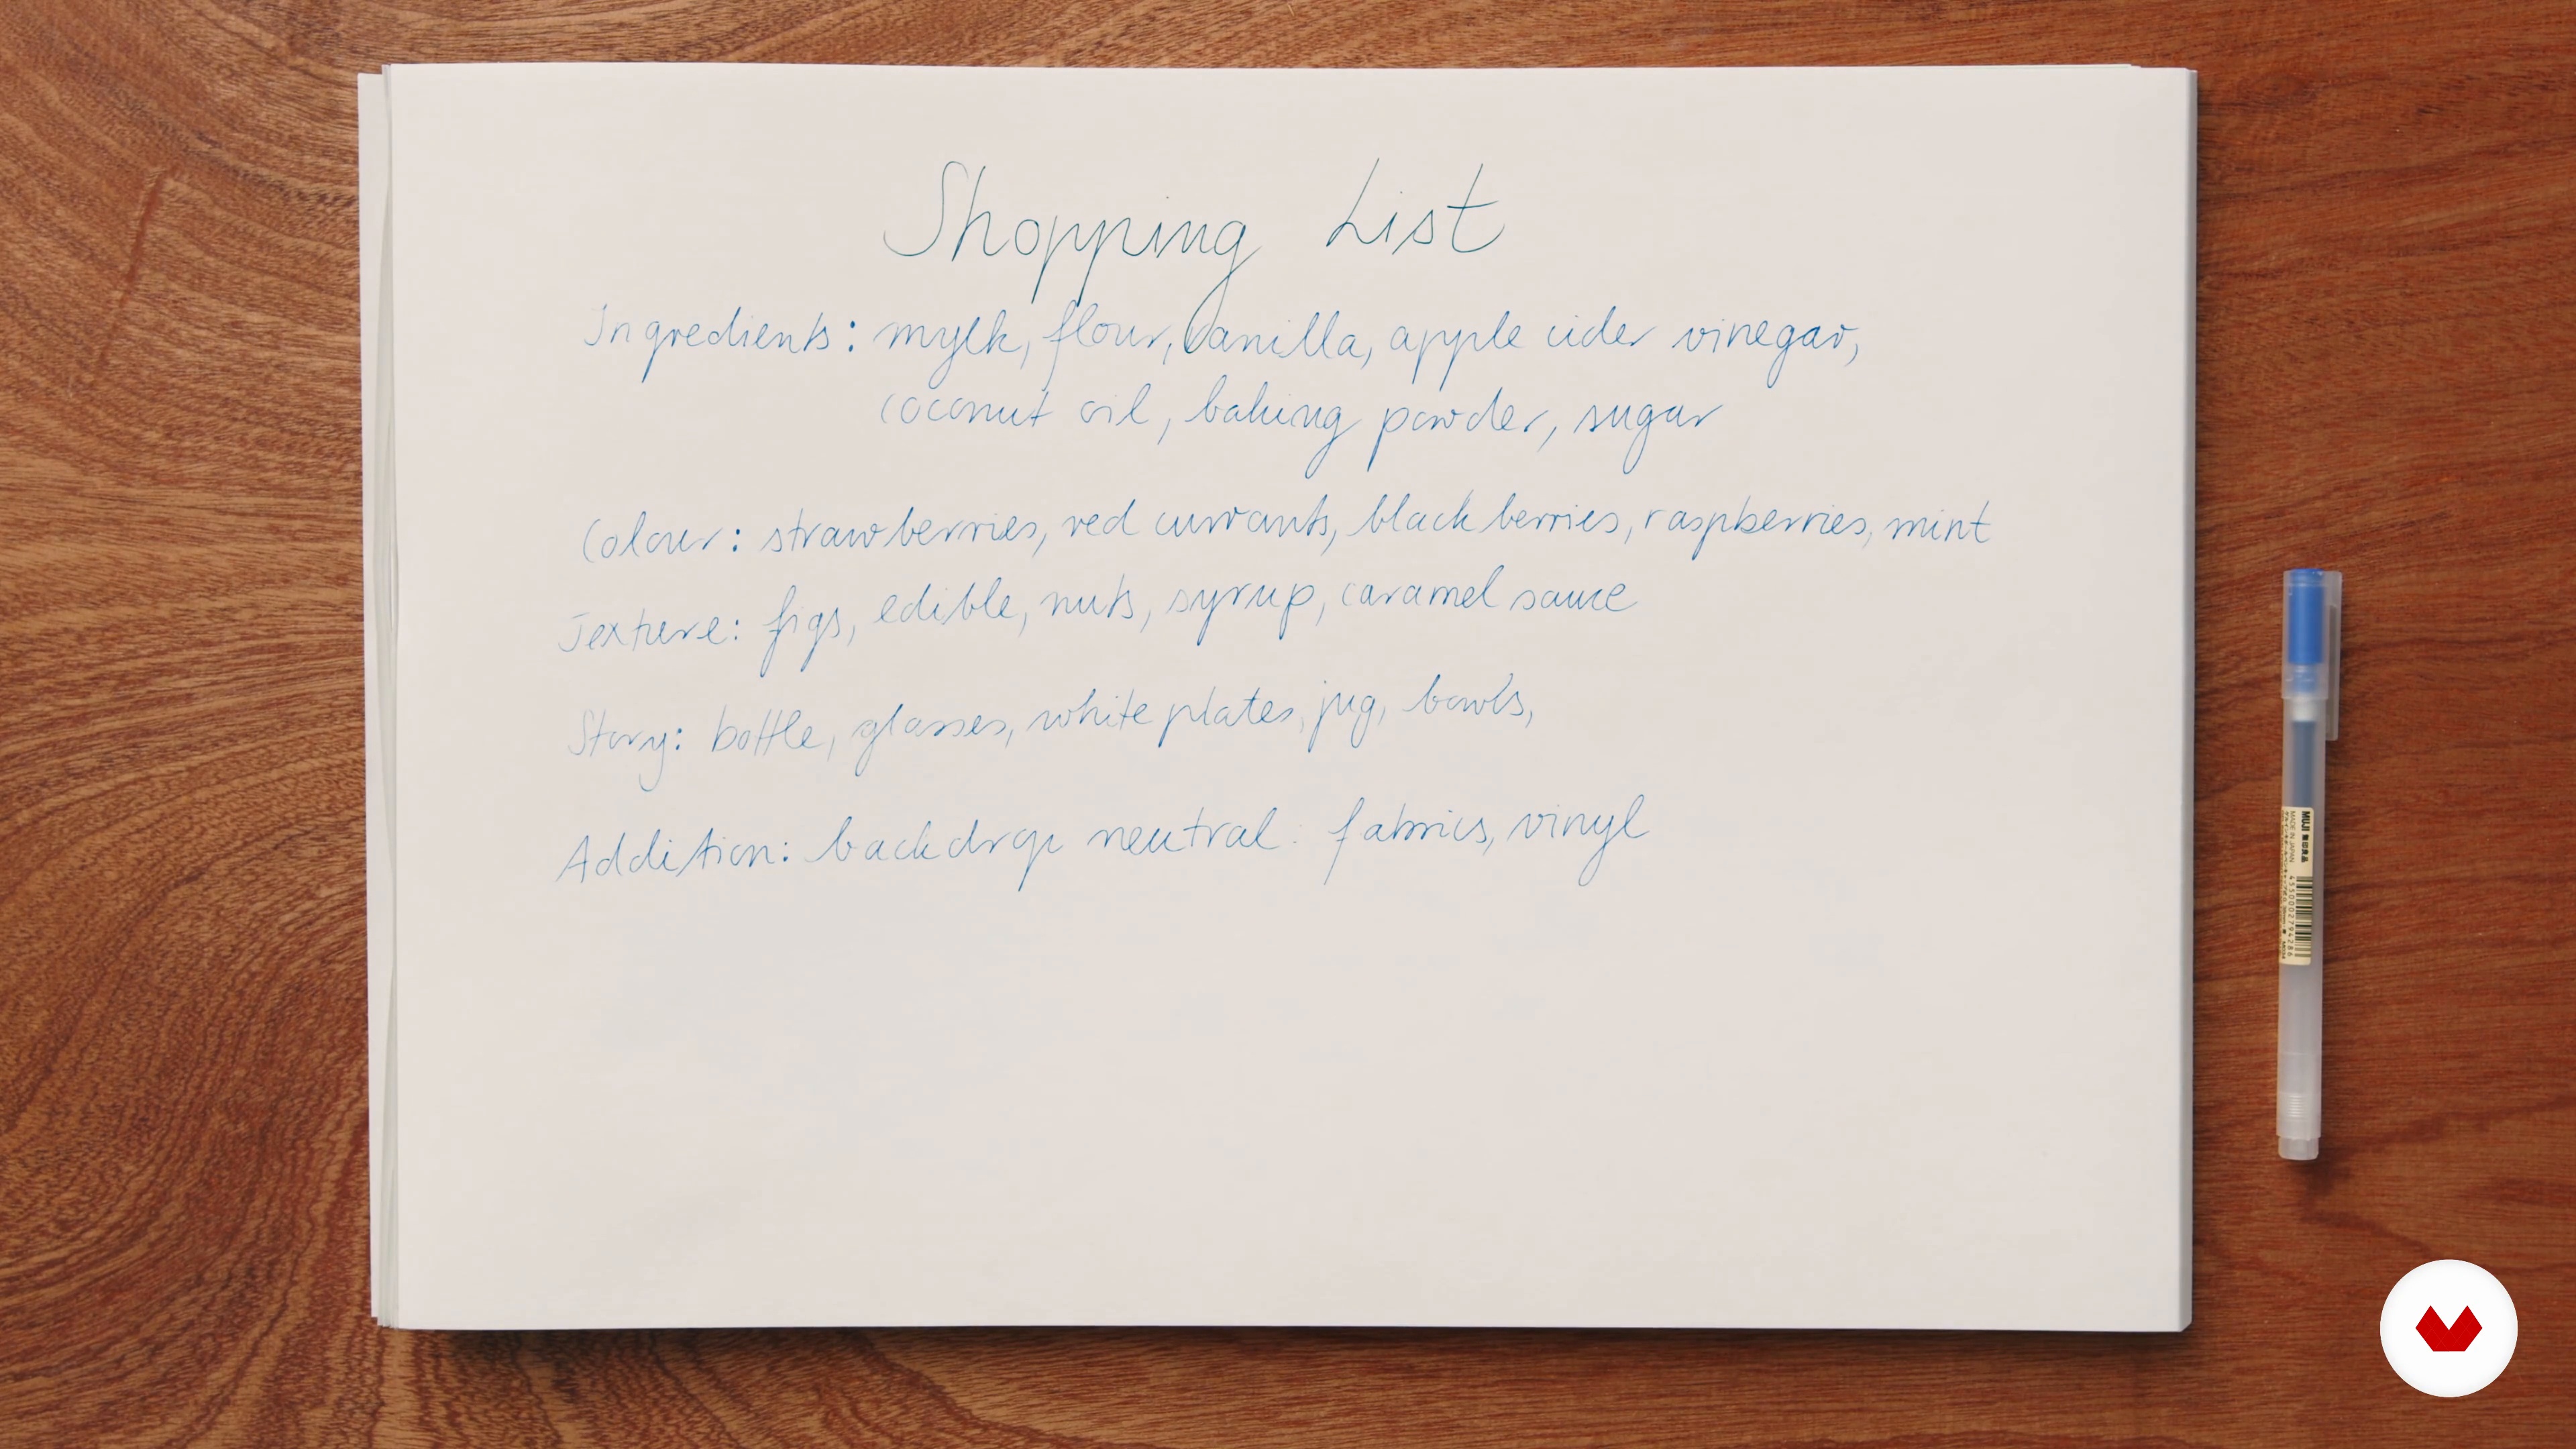 Shopping List
Ingredients: mylk, flour, vanilla, apple cider vinegar,
coconut oil, baking powder, sugar
Colour: strawberries, red currants, blackberries, raspberries, mint
Texture: figs, edible, nuts, syrup, caramel sauce
Story: bottle, glasses, white plates, jug, bowls,
Addition: backdrop neutral: fabrics, vinyl
MUJI 無印良品
MADE IN JAPAN
4550002794286